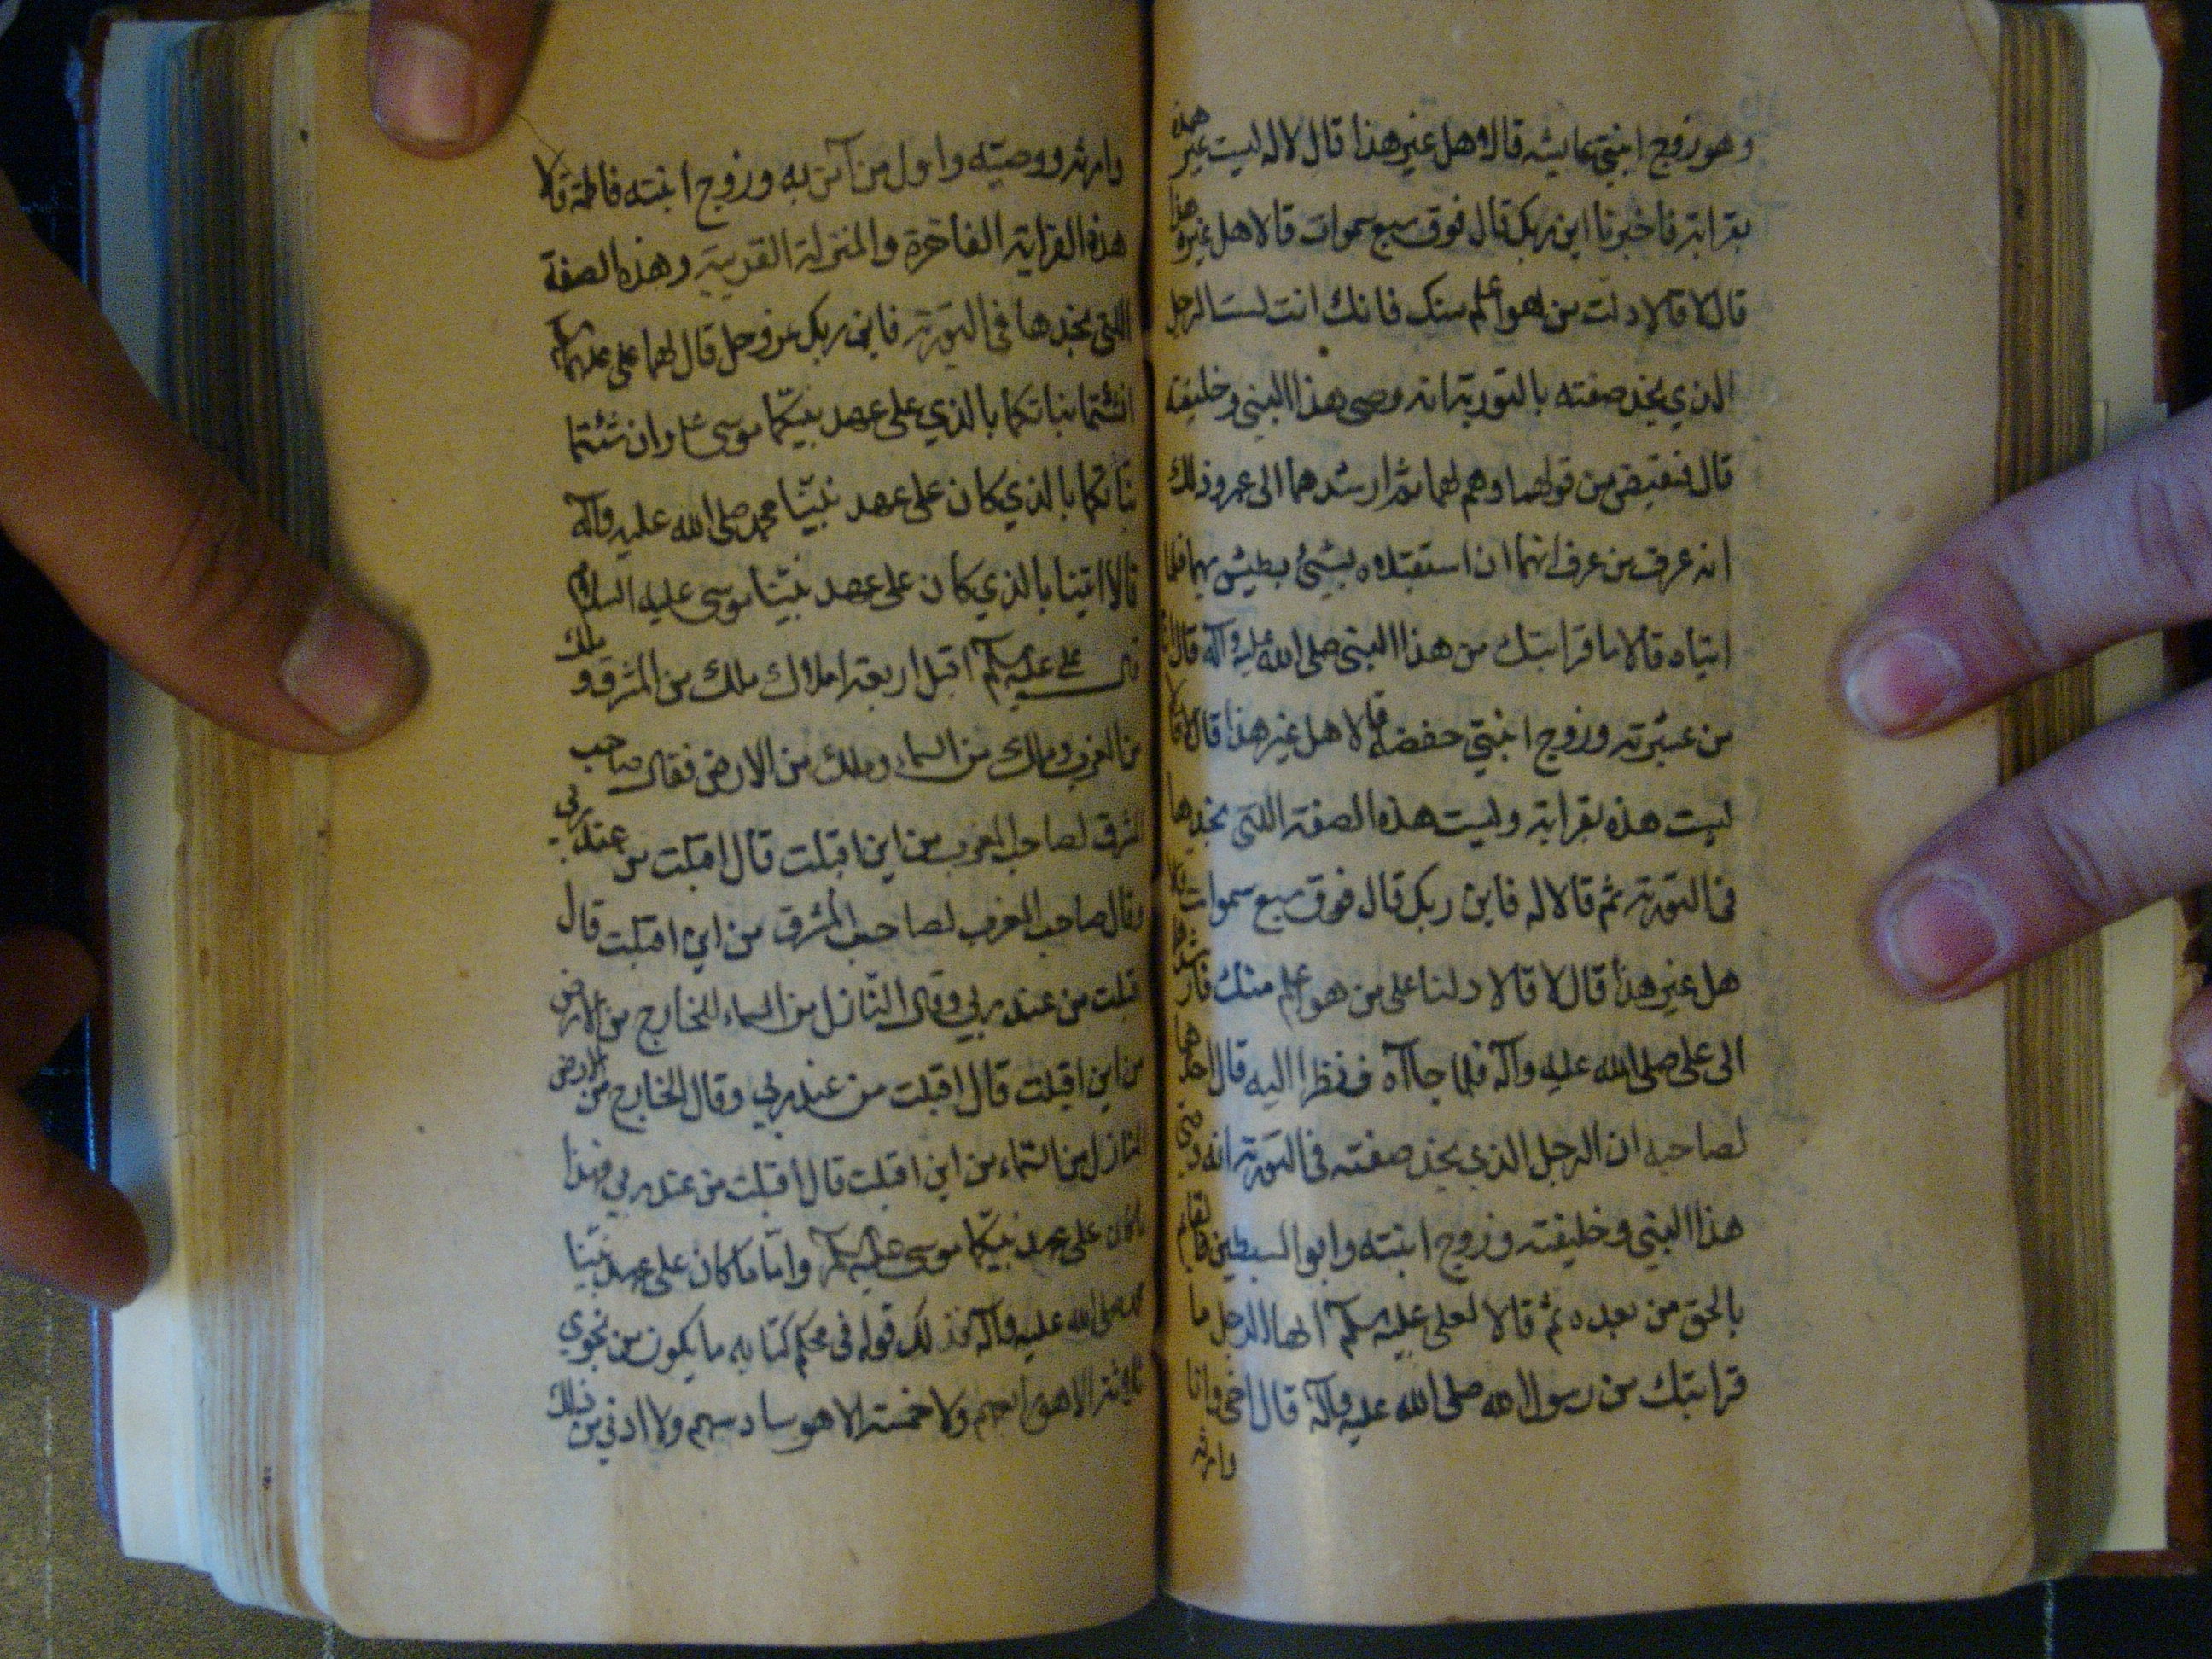 وهو زوج ابنتي عايشه قال وهل غير هذا قال لا له ليست غير هذه
بقرابة فاخبرنا اين ربك قال فوق سبع سموات قالا هل غير هذا
قال لا قالا دلت من هو اعلم منك فانك انت لست الرجل
الذي نجد صفته بالتورية انه وصي هذا النبي وخليفته
قال فتغيض من قولهما وهم لهما ثم ارشدهما الى عمر وذلك
انه عرف من عرف انهما ان استقبلاه بشيئ بطيش بهما فلما
اتياه قالا ما قرابتك من هذا النبي صلى الله عليه وآله قال انا
من عشيرته وزوج ابنتي حفضه قالا هل غير هذا قال لا قالا
ليست هذه بقرابة وليست هذه الصفة اللتي نجدها
في التورية ثم قالا له فاين ربك قال فوق سبع سموات قالا
هل غير هذا قال لا قالا دلنا على من هو اعلم منك فارشدهما
الى علي صلى الله عليه وآله فلما جاآه فنظرا اليه قال احدهما
لصاحبه ان الرجل الذي نجد صفته في التورية انه وصي
هذا النبي وخليفته وزوج ابنته وابو السبطين القايم
بالحق من بعده ثم قالا لعلي عليه السلم ايها الرجل ما
قرابتك من رسول الله صلى الله عليه وآله قال اخي وانا
وارثه
وارثه ووصيته واول من آمن به وزوج ابنته فاطمة قالا
هذه القرابة الفاخرة والمنزلة القريبة وهذه الصفة
اللتي نجدها في التورية فاين ربك عز وجل قال لهما علي عليه السلم
انشئتما نباتكما بالذي على عهد نبيكما موسى ع وان شئتما
نباتكما بالذي كان على عهد نبينا محمد صلى الله عليه وآله
قالا انبئنا بالذي كان على عهد نبينا موسى عليه السلام
قال علي عليه السلم اقبل اربعة املاك ملك من المشرق وملك
من المغرب وملك من السماء وملك من الارض فقال صاحب
المشرق لصاحب المغرب من اين اقبلت قال اقبلت من عند ربي
وقال صاحب المغرب لصاحب المشرق من اين اقبلت قال
اقبلت من عند ربي وقال النازل من السماء للخارج من الارض
من اين اقبلت قال اقبلت من عند ربي وقال الخارج من الارض
للنازل من السماء من اين اقبلت قال اقبلت من عند ربي فهذا
ما كان على عهد نبيكما موسى عليه السلم واما ما كان على عهد نبينا
محمد صلى الله عليه وآله فذلك قوله في محكم كتابه ما يكون من نجوي
ثلاثة الا هو رابعهم ولا خمسة الا هو سادسهم ولا ادني من ذلك